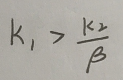 K₁ > K₂/β